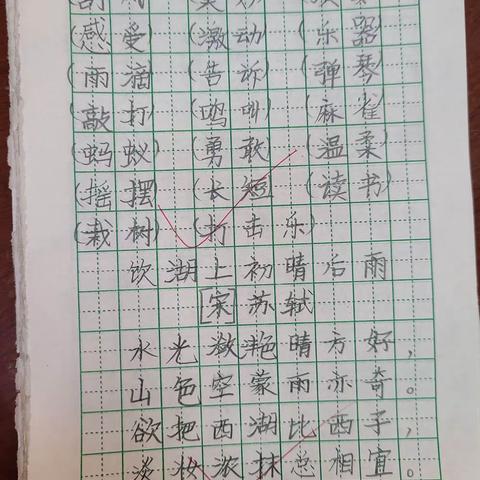 (感受) (激动) (乐器)
(雨滴) (告诉) (弹琴)
(敲打) (鸣叫) (麻雀)
(蚂蚁) (勇敢) (温柔)
(摇摆) (长短) (读书)
(栽树) (打击乐)
饮湖上初晴后雨
[宋] 苏轼
水光潋滟晴方好，
山色空蒙雨亦奇。
欲把西湖比西子，
淡妆浓抹总相宜。